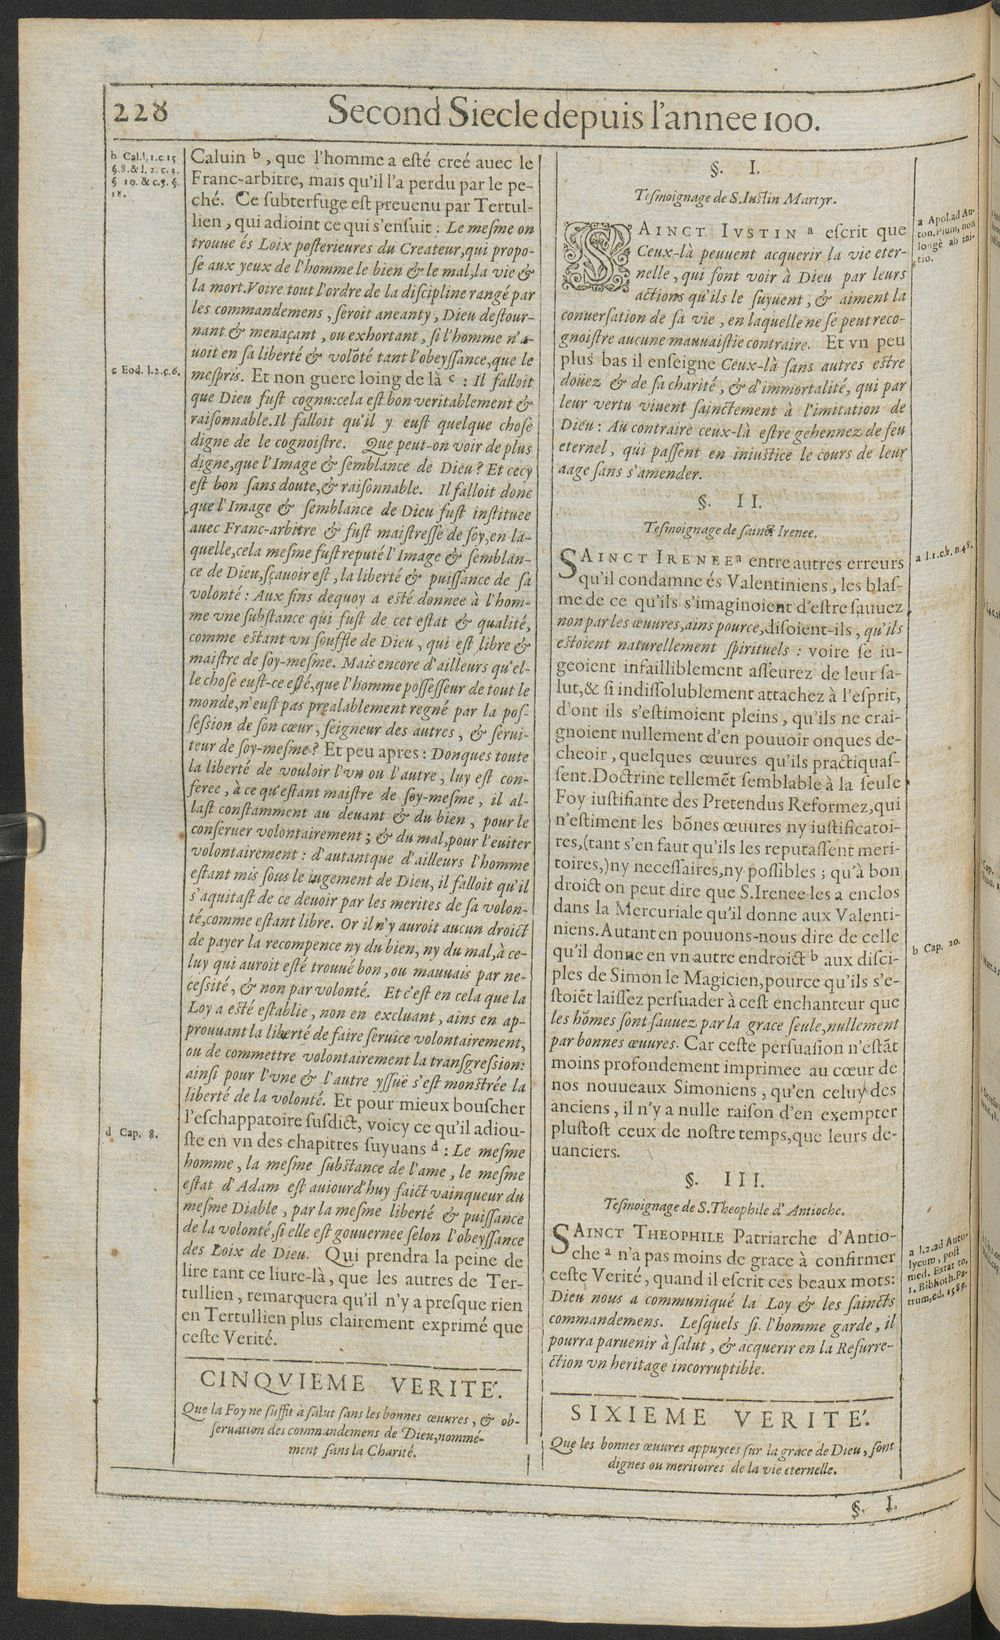 228
Second Siecle depuis l'annee 100.
b Cal. l. 1. c. 15
§. 8. & l. 2. c. 2.
§ 10. & c. 5. §.
18.
Caluin b, que l'homme a esté creé auec le
Franc-arbitre, mais qu'il l'a perdu par le pe-
ché. Ce subterfuge est preuenu par Tertul-
lien, qui adioint ce qui s'ensuit: Le mesme on
trouue és Loix posterieures du Createur, qui propo-
se aux yeux de l'homme le bien & le mal, la vie &
la mort. Voire tout l'ordre de la discipline rangé par
les commandemens, seroit aneanty, Dieu destour-
nant & menaçant, ou exhortant, si l'homme n'a-
uoit en sa liberté & volõté tant l'obeyssance, que le
c Eod. l. 2. c. 6.
mespris. Et non guere loing de là c: Il falloit
que Dieu fust cognu: cela est bon veritablement &
raisonnable. Il falloit qu'il y eust quelque chose
digne de le cognoistre. Que peut-on voir de plus
digne, que l'Image & semblance de Dieu? Et cecy
est bon sans doute, & raisonnable. Il falloit donc
que l'Image & semblance de Dieu fust instituee
auec Franc-arbitre & fust maistresse de soy, en la-
quelle, cela mesme fust reputé l'Image & semblan-
ce de Dieu, sçauoir est, la liberté & puissance de sa
volonté: Aux fins dequoy a esté donnee à l'hom-
me vne substance qui fust de cet estat & qualité,
comme estant vn souffle de Dieu, qui est libre &
maistre de soy-mesme. Mais encore d'ailleurs qu'el-
le chose eust-ce esté, que l'homme possesseur de tout le
monde, n'eust pas prealablement regné par la pos-
session de son cœur, seigneur des autres, & serui-
teur de soy-mesme? Et peu apres: Donques toute
la liberté de vouloir l'vn ou l'autre, luy est con-
feree, à ce qu'estant maistre de soy-mesme, il al-
last constamment au deuant & du bien, pour le
conseruer volontairement; & du mal, pour l'euiter
volontairement: d'autant que d'ailleurs l'homme
estant mis sous le iugement de Dieu, il falloit qu'il
s'aquitast de ce deuoir par les merites de sa volon-
té, comme estant libre. Or il n'y auroit aucun droict
de payer la recompence ny du bien, ny du mal, à ce-
luy qui auroit esté trouué bon, ou mauuais par ne-
cessité, & non par volonté. Et c'est en cela que la
Loy a esté establie, non en excluant, ains en ap-
prouuant la liberté de faire seruice volontairement,
ou de commettre volontairement la transgression:
ainsi pour l'vne & l'autre yssuë s'est monstrée la
liberté de la volonté. Et pour mieux bouscher
l'eschappatoire susdict, voicy ce qu'il adiou-
d Cap. 8.
ste en vn des chapitres suyuans d: Le mesme
homme, la mesme substance de l'ame, le mesme
estat d'Adam est auiourd'huy faict vainqueur du
mesme Diable, par la mesme liberté & puissance
de la volonté, si elle est gouuernee selon l'obeyssance
des Loix de Dieu. Qui prendra la peine de
lire tant ce liure-là, que les autres de Ter-
tullien, remarquera qu'il n'y a presque rien
en Tertullien plus clairement exprimé que
ceste Verité.
CINQVIEME VERITE'.
Que la Foy ne suffit à salut sans les bonnes œuures, & ob-
seruation des commandemens de Dieu, nommé-
ment sans la Charité.
§. I.
Tesmoignage de S. Iustin Martyr.
a Apol. ad An-
ton. Pium, non
longè ab ini-
tio.
SAINCT IVSTIN a escrit que
Ceux-là peuuent acquerir la vie eter-
nelle, qui font voir à Dieu par leurs
actions qu'ils le suyuent, & aiment la
conuersation de sa vie, en laquelle ne se peut reco-
gnoistre aucune mauuaistie contraire. Et vn peu
plus bas il enseigne Ceux-là sans autres estre
doüez & de sa charité, & d'immortalité, qui par
leur vertu viuent sainctement à l'imitation de
Dieu: Au contraire ceux-là estre gehennez de feu
eternel, qui passent en iniustice le cours de leur
aage sans s'amender.
§. II.
Tesmoignage de sainct Irenee.
SAINCT IRENEE a entre autres erreurs
qu'il condamne és Valentiniens, les blas-
me de ce qu'ils s'imaginoient d'estre sauuez
non par les œuures, ains pource, disoient-ils, qu'ils
estoient naturellement spirituels: voire se iu-
geoient infailliblement asseurez de leur sa-
lut, & si indissolublement attachez à l'esprit,
d'ont ils s'estimoient pleins, qu'ils ne crai-
gnoient nullement d'en pouuoir onques de-
cheoir, quelques œuures qu'ils practiquas-
sent. Doctrine tellemẽt semblable à la seule
Foy iustifiante des Pretendus Reformez, qui
n'estiment les bõnes œuures ny iustificatoi-
res, (tant s'en faut qu'ils les reputassent meri-
toires,) ny necessaires, ny possibles; qu'à bon
droict on peut dire que S. Irenee les a enclos
dans la Mercuriale qu'il donne aux Valenti-
niens. Autant en pouuons-nous dire de celle
b Cap. 20.
qu'il donne en vn autre endroict b aux disci-
ples de Simon le Magicien, pource qu'ils s'e-
stoiẽt laissez persuader à cest enchanteur que
les hõmes sont sauuez par la grace seule, nullement
par bonnes œuures. Car ceste persuasion n'estãt
moins profondement imprimee au cœur de
nos nouueaux Simoniens, qu'en celuy des
anciens, il n'y a nulle raison d'en exempter
plustost ceux de nostre temps, que leurs de-
uanciers.
§. III.
Tesmoignage de S. Theophile d'Antioche.
a l. 2. ad Auto-
lycum, post
med. Extat to.
1. Biblioth. Pa-
trum, ed. 1589.
SAINCT THEOPHILE Patriarche d'Antio-
che a n'a pas moins de grace à confirmer
ceste Verité, quand il escrit ces beaux mots:
Dieu nous a communiqué la Loy & les saincts
commandemens. Lesquels si l'homme garde, il
pourra paruenir à salut, & acquerir en la Resurre-
ction vn heritage incorruptible.
SIXIEME VERITE'.
Que les bonnes œuures appuyees sur la grace de Dieu, sont
dignes ou meritoires de la vie eternelle.
§. I.